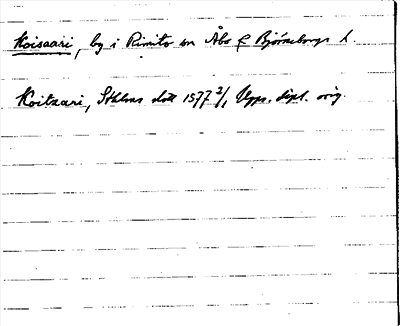 Koisaari, by i Rimito sn Åbo & Björneborgs l.
Koitzari, Sthlms slott 1577 2/1, Upps. dipl. orig.